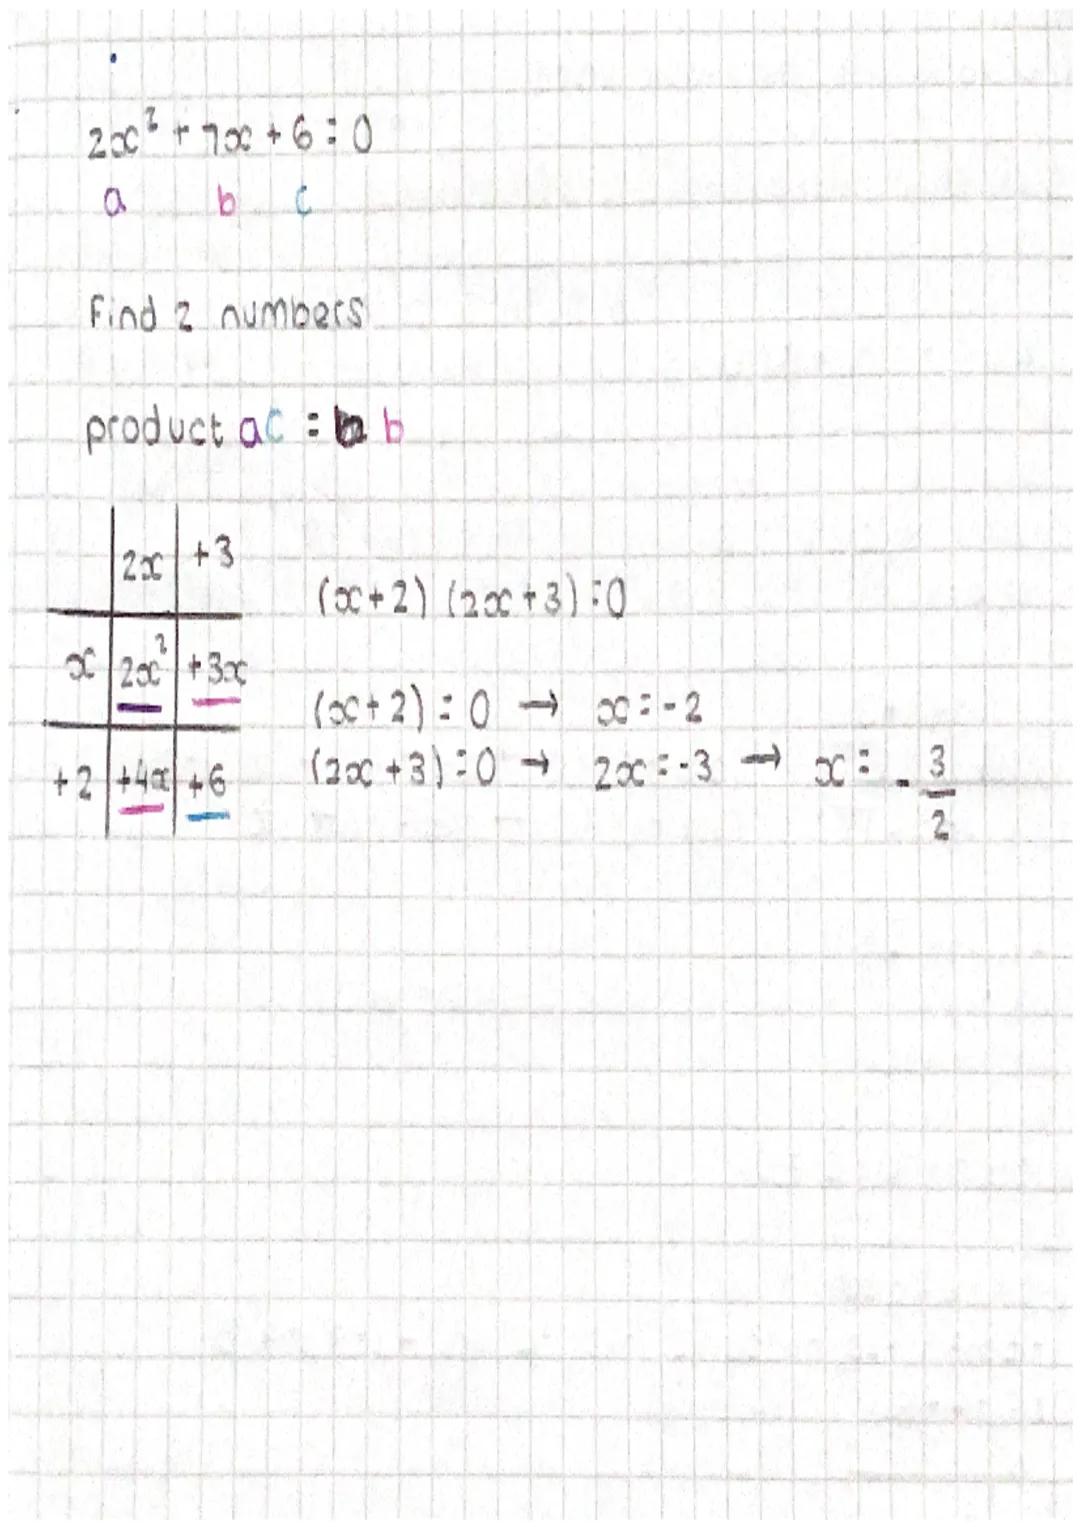 2x² + 7x + 6 = 0
a b c
Find 2 numbers
product ac = b
2x +3
(x+2) (2x+3) = 0
x 2x² +3x
(x+2) = 0 → x = -2
+2 +4x +6
(2x+3) = 0 → 2x = -3 → x = - 3/2